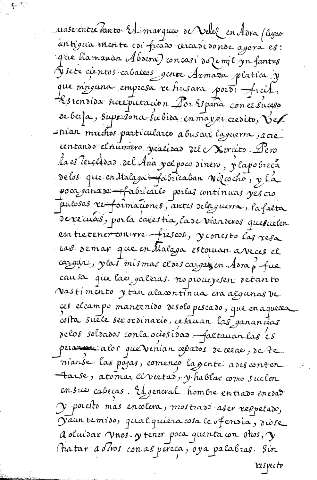 uase entretanto. El marques de Velez en Adra (lugar
antigua mente edificado cerca de donde agora es:
que llamaron Abdera) con casi doze mil ynfantes
y sete cientos caballos, gente Armada platica y
que ninguna empresa rehusara por dificil.
Estendida su reputacion Por España con el suceso
de berja, su persona subida en mayor credito, Ve-
nian muchos particulares a buscar la guerra, acre
centando el numero y calidad del Exercito. Pero
la esterilidad del Año y el poco dinero, y la pobreça
de los que en Malaga fabricaban vizcocho, y la
poca gana de fabricallo por las continuas y escru
pulosas reformaciones, antes de la guerra, la falta
de recuas, por la carestia, la de vivanderos que suelen
entretener con refrescos, y con esto las resa
cas de mar que en Malaga estorvan a veces el
cargar, y las mismas el descargar en Adra fue
causa que las galeras no proveyesen de tanto
vastimento y tan a la continua era algunas ve
ces el campo mantenido de solo pescado, que en aquella
costa suele ser ordinario, cesavan las ganancias
de los soldados con la ociosidad faltavan las es
peranças a los que venian cebados de ellas, de te
nianse las pagas, començo la gente a desconten
tarse, a tomar libertad, y hablar como suelen
en sus cabeças. El general hombre entrado en edad
y por esto mas en colera, mostrado a ser respetado,
y aun temido, qualquiera cosa le ofendia, diose
a olvidar unos, y tener poca quenta con otros, y
tratar a otros con aspereça, oya palabras sin
respecto